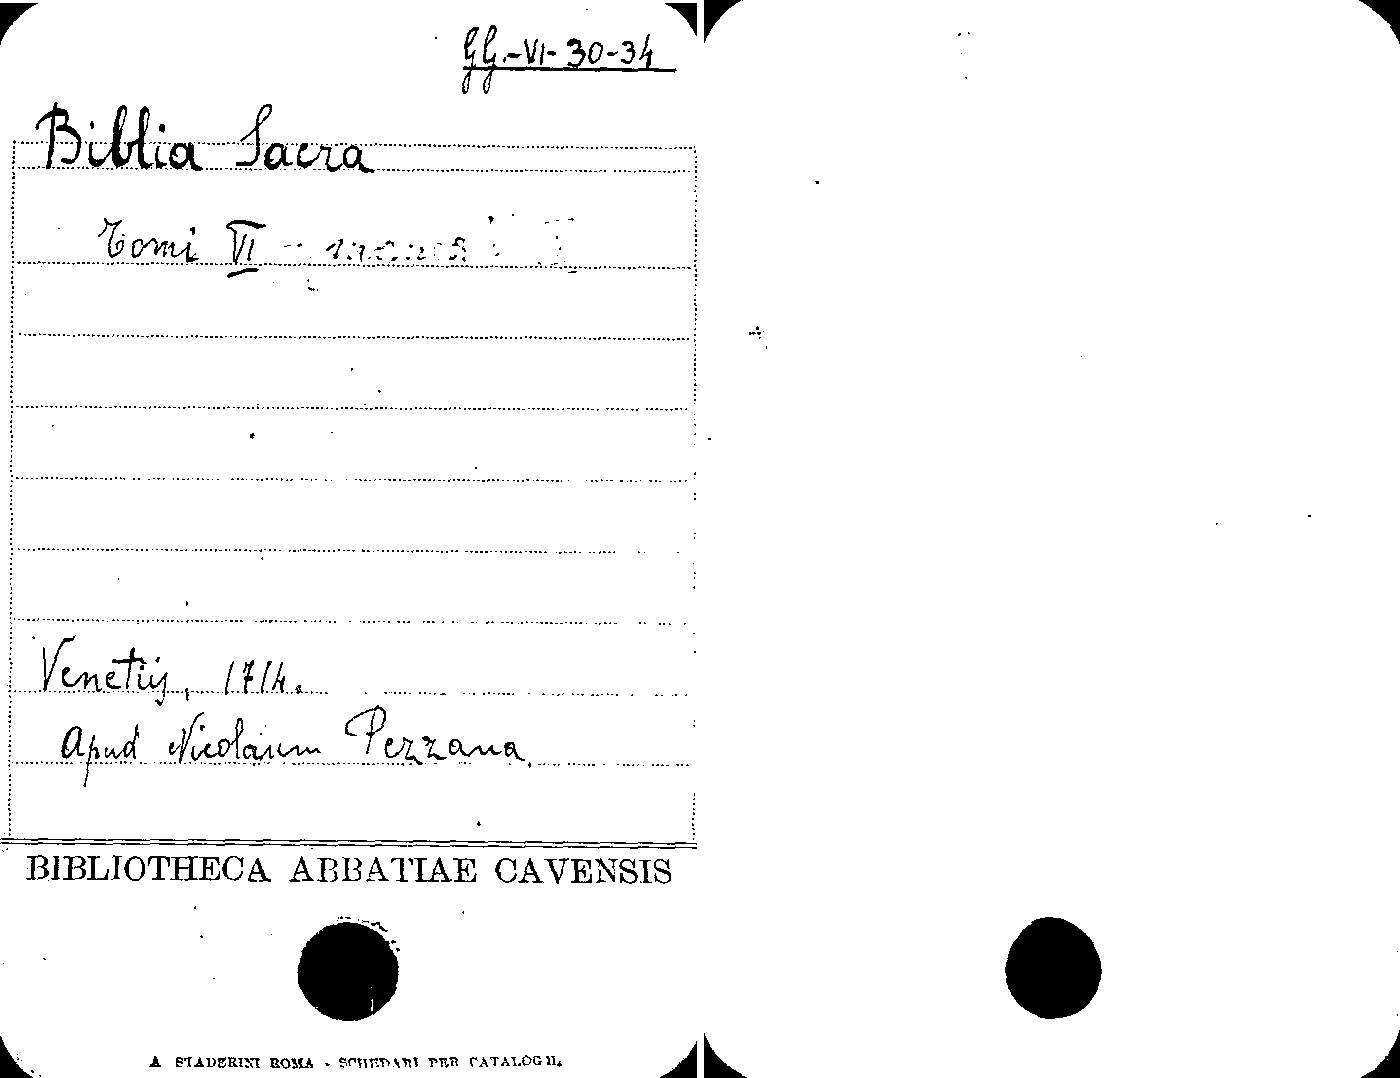 GG.-VI-30-34
Biblia Sacra
Tomi VI -
Venetiis, 1714.
Apud Nicolaum Pezzana.
BIBLIOTHECA ABBATIAE CAVENSIS
A STADERINI ROMA - SCHEDARI PER CATALOGHI.